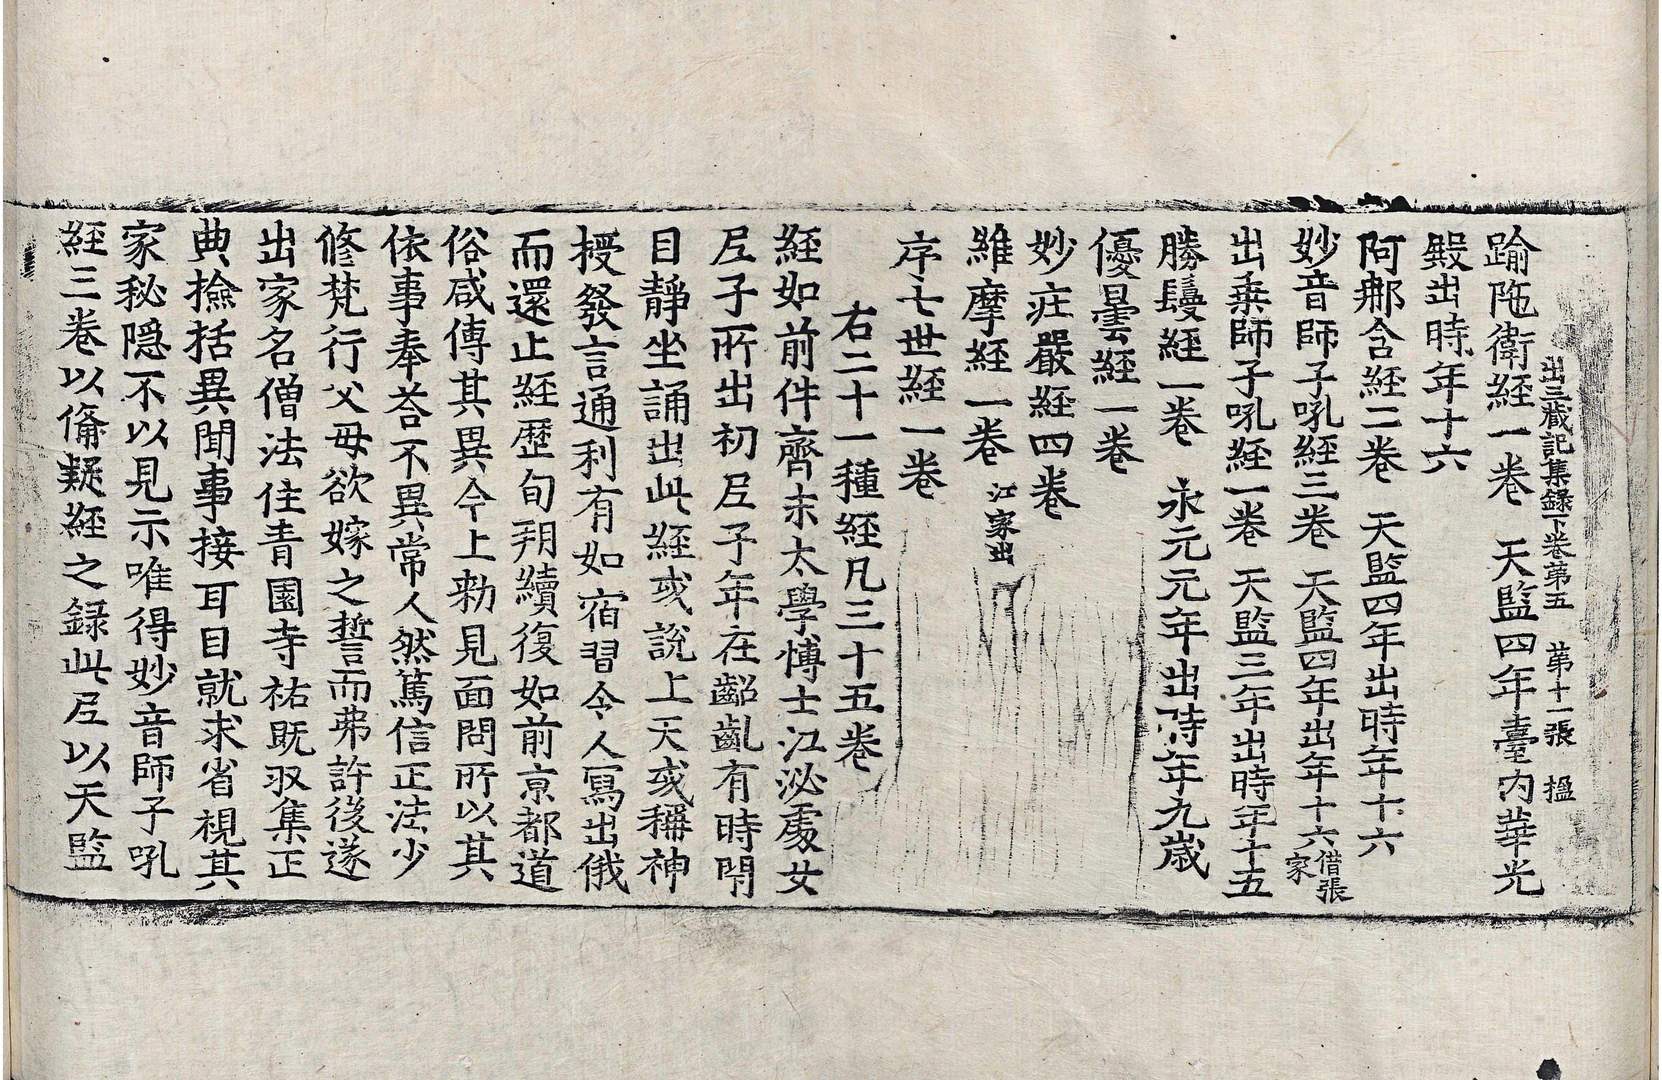 出三蔵記集録下卷苐五　苐十一張　搵
踰陁衛經一卷　天監四年臺内華光
殿出時年十六
阿郍含經二卷　天監四年出時年十六
妙音師子吼經三卷　天監四年出年十六借張家
出乗師子吼經一卷　天監三年出時年十五
勝鬘經一卷　永元元年出時年九歳
優曇經一卷
妙疘嚴經四卷
維摩經一卷　江家出
序七世經一卷
右二十一種經凡三十五卷
經如前件齊末太學愽士江泌處女
尼子所出初尼子年在齠齓有時閇
目静坐誦出此經或說上天或稱神
授發言通利有如宿習令人寫出俄
而還止經歷旬朔續復如前京都道
俗咸傳其異今上勑見面問所以其
依事奉荅不異常人然篤信正法少
修梵行父母欲嫁之誓而弗許後遂
出家名僧法住青園寺祐既収集正
典撿括異聞事接耳目就求省視其
家秘隠不以見示唯得妙音師子吼
經三卷以俻疑經之録此尼以天監